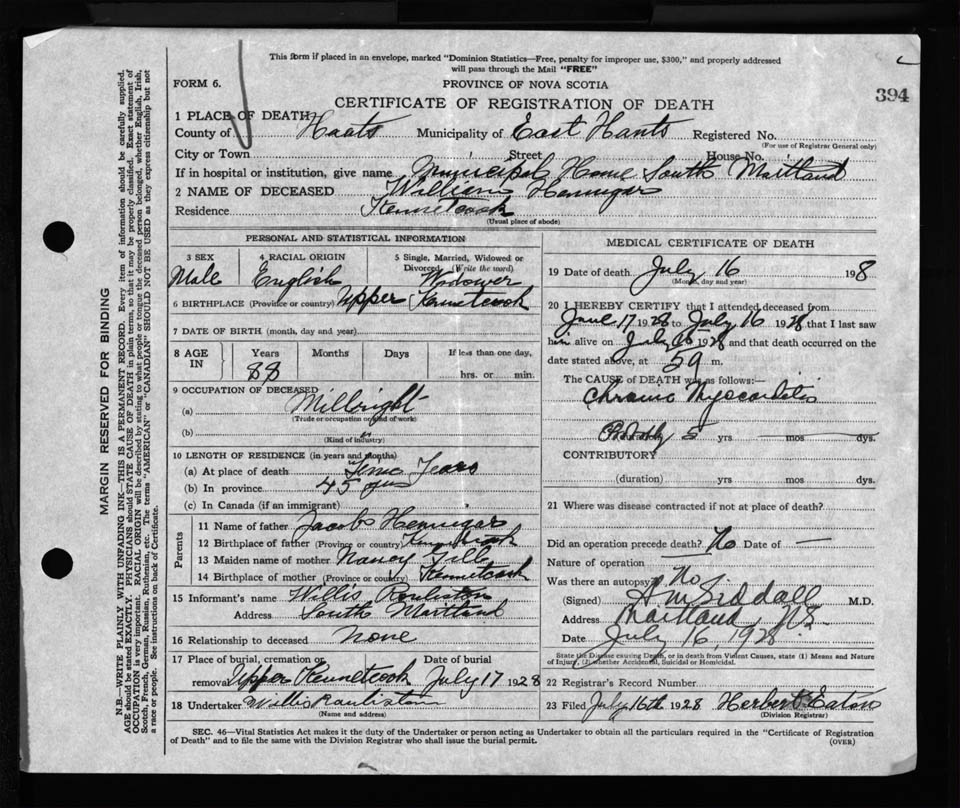 This form if placed in an envelope, marked "Dominion Statistics—Free, penalty for improper use, $300," and properly addressed
will pass through the Mail "FREE"
FORM 6.
PROVINCE OF NOVA SCOTIA
394
CERTIFICATE OF REGISTRATION OF DEATH
1 PLACE OF DEATH
County of Hants Municipality of East Hants Registered No.
(For use of Registrar General only)
City or Town Street House No.
If in hospital or institution, give name Municipal Home South Maitland
2 NAME OF DECEASED William Hennigar
Residence Kennetcook
(Usual place of abode)
PERSONAL AND STATISTICAL INFORMATION
3 SEX 4 RACIAL ORIGIN 5 Single, Married, Widowed or Divorced (Write the word)
Male English Widower
6 BIRTHPLACE (Province or country) Upper Kennetcook
7 DATE OF BIRTH (month, day and year)
8 AGE IN Years Months Days If less than one day,
88 hrs. or min.
9 OCCUPATION OF DECEASED
(a) Millwright
(Trade or occupation or kind of work)
(b)
(Kind of industry)
10 LENGTH OF RESIDENCE (in years and months)
(a) At place of death Years
(b) In province 45 yrs
(c) In Canada (if an immigrant)
Parents
11 Name of father Jacob Hennigar
12 Birthplace of father (Province or country) Kennetcook
13 Maiden name of mother Nancy Gill
14 Birthplace of mother (Province or country) Kennetcook
15 Informant's name Willis
Address South Maitland
16 Relationship to deceased None
17 Place of burial, cremation or removal Upper Kennetcook Date of burial July 17 1928
18 Undertaker Willis
(Name and address)
MEDICAL CERTIFICATE OF DEATH
19 Date of death July 16 1928
(Month, day and year)
20 I HEREBY CERTIFY that I attended deceased from
June 17 1928 to July 16 1928 that I last saw
him alive on July 1928 and that death occurred on the
date stated above, at m.
The CAUSE of DEATH was as follows:—
Chronic Myocarditis
Probably 5 yrs mos dys.
CONTRIBUTORY
(duration) yrs mos dys.
21 Where was disease contracted if not at place of death?
Did an operation precede death? No Date of —
Nature of operation
Was there an autopsy? No
(Signed) A M Siddall M.D.
Address Maitland N.S.
Date July 16, 1928
State the Disease causing Death, or in death from Violent Causes, state (1) Means and Nature
of Injury, (2) whether Accidental, Suicidal or Homicidal.
22 Registrar's Record Number
23 Filed July 16th 1928 Herbert Eaton
(Division Registrar)
SEC. 46—Vital Statistics Act makes it the duty of the Undertaker or person acting as Undertaker to obtain all the particulars required in the "Certificate of Registration
of Death" and to file the same with the Division Registrar who shall issue the burial permit.
(OVER)
MARGIN RESERVED FOR BINDING
N.B.—WRITE PLAINLY WITH UNFADING INK—THIS IS A PERMANENT RECORD. Every item of information should be carefully supplied.
AGE should be stated EXACTLY. PHYSICIANS should STATE CAUSE OF DEATH in plain terms, so that it may be properly classified. Exact statement of
OCCUPATION is very important. RACIAL ORIGIN will be described by stating to what people or tongue the deceased person belonged, whether English, Irish,
Scotch, French, German, Russian, Ruthenian, etc. The terms "AMERICAN" or "CANADIAN" SHOULD NOT BE USED as they express citizenship but not
a race or people. See instructions on back of Certificate.